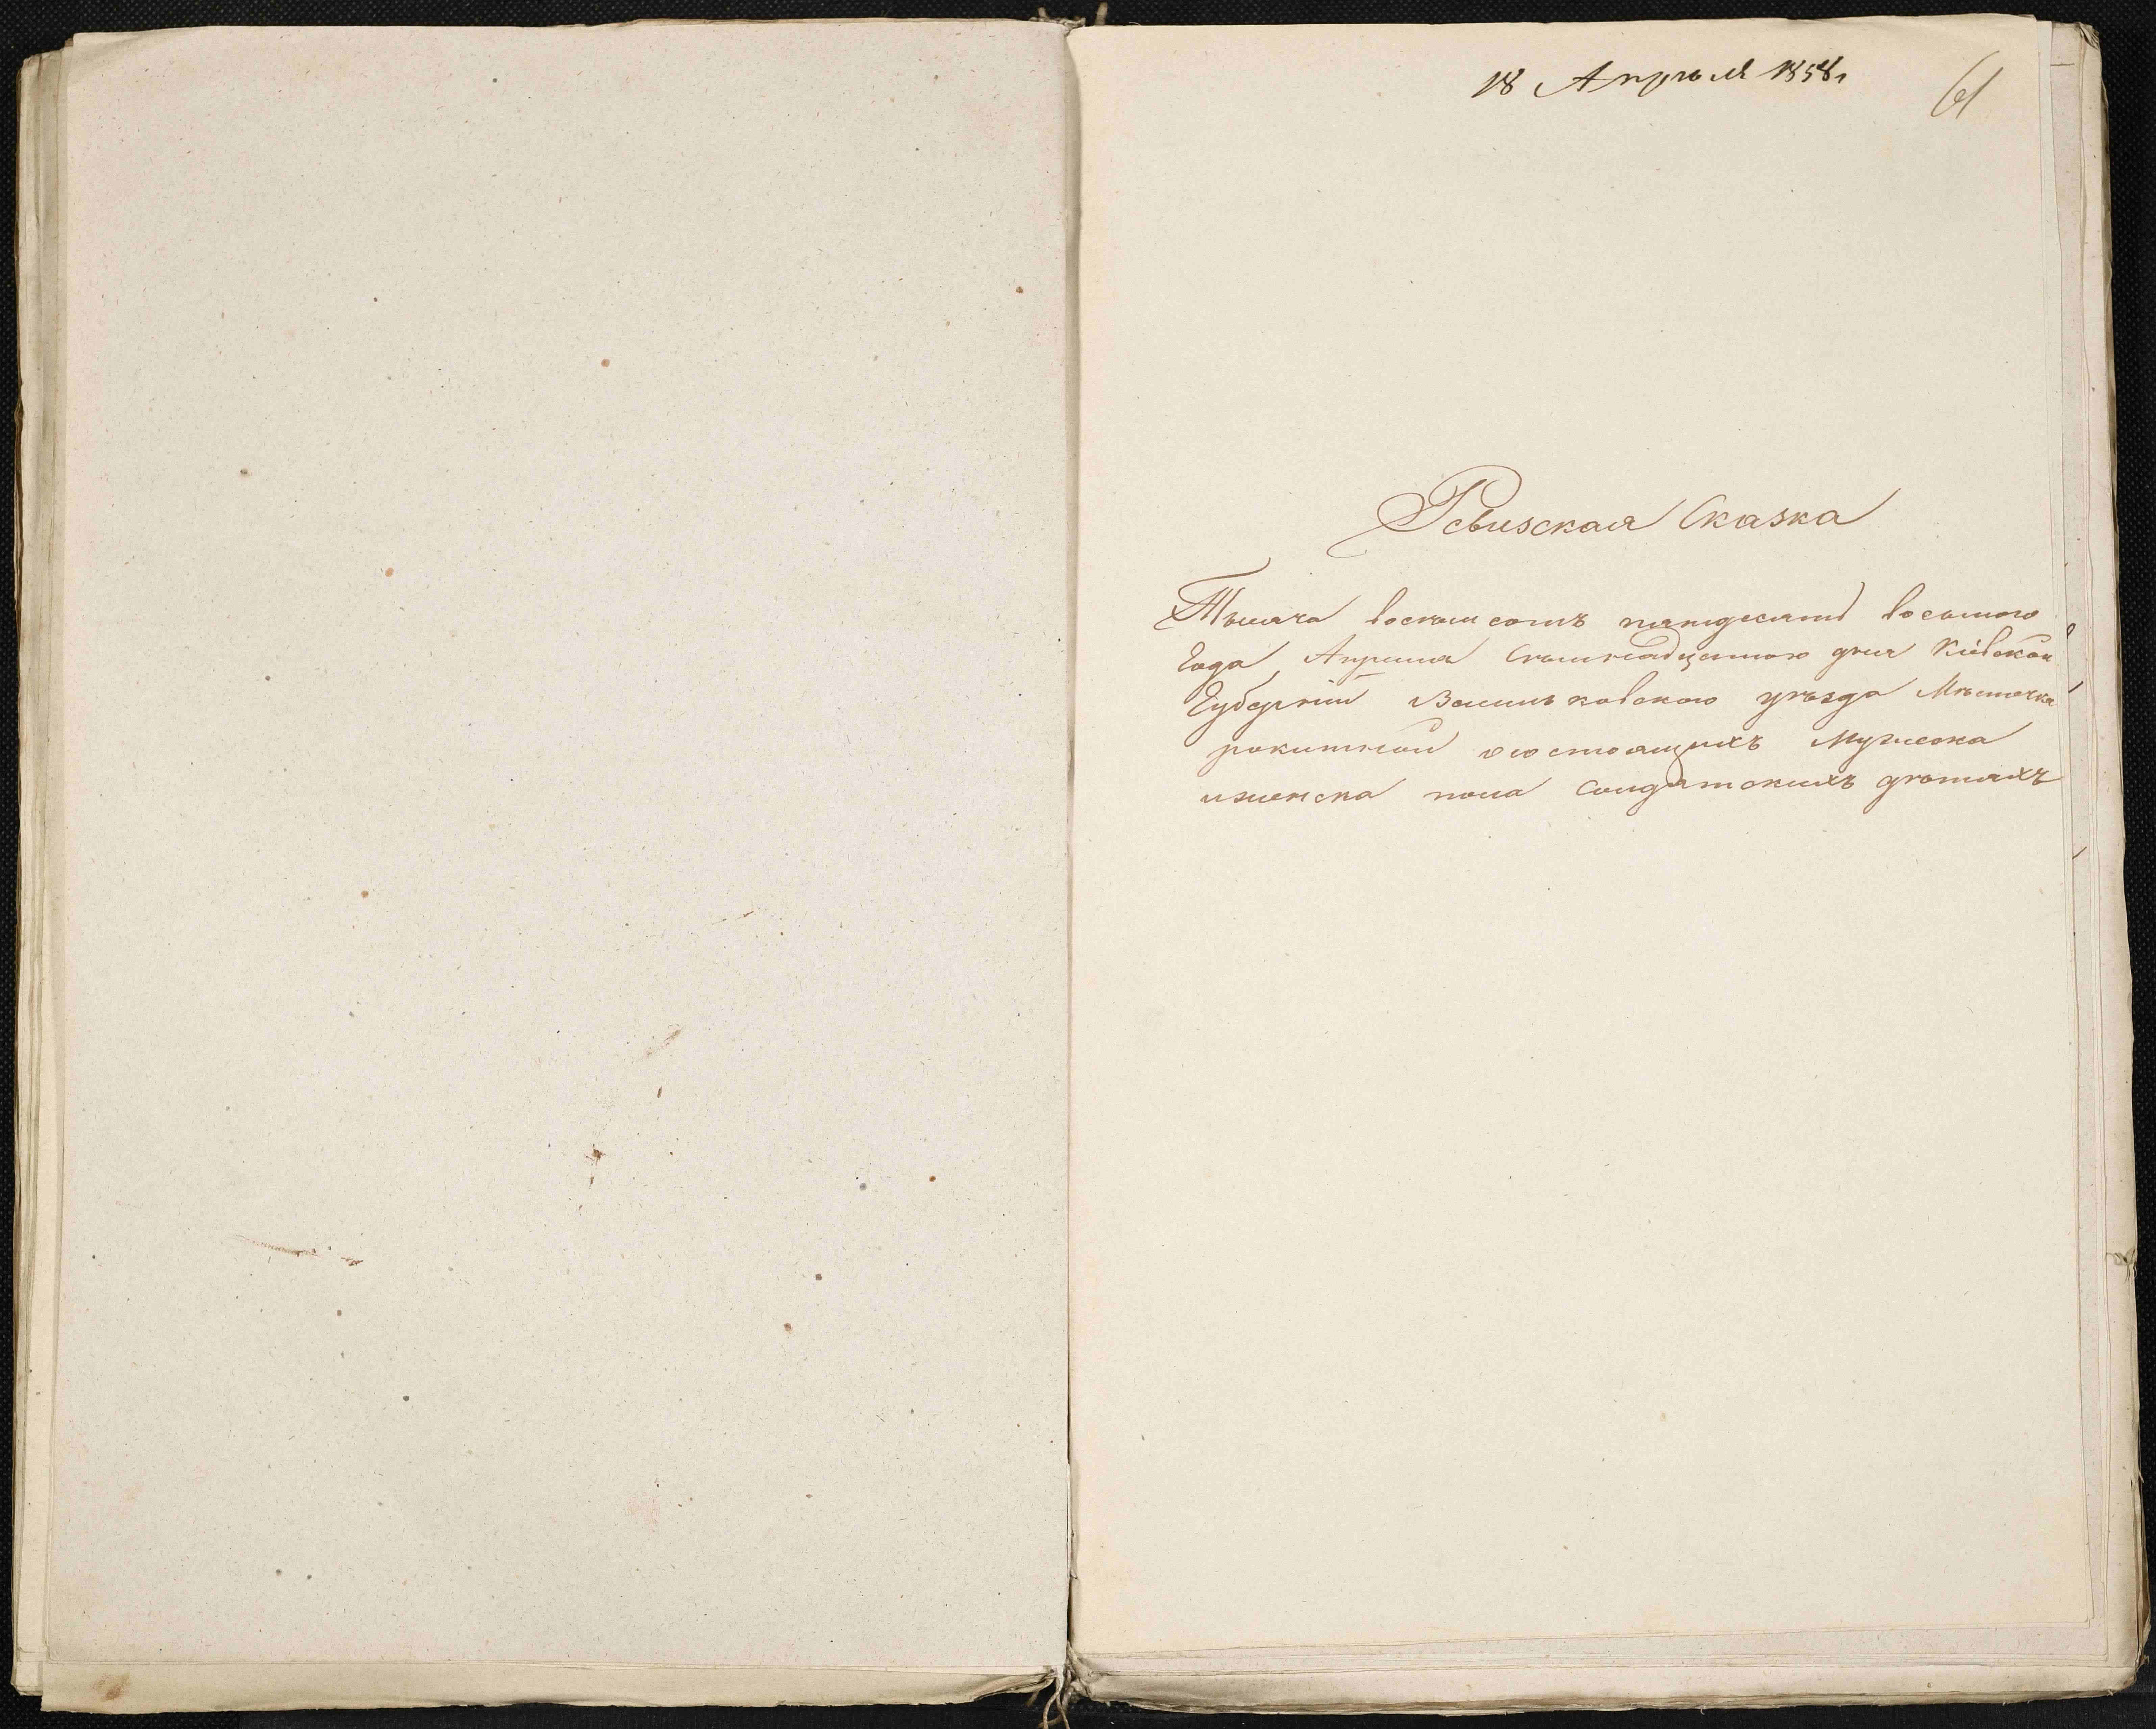 18 Апрѣля 1858г
61
Ревизская Сказка
Тысяча восемьсотъ пятдесятъ восьмого
Года, Апреля Семьнадцатого дня Кіевской
Губерніи Васильковского уѣзда Мѣстечка
рокитной о состоящихъ Мужеска
иженска пола Солдатскихъ дѣтяхъ